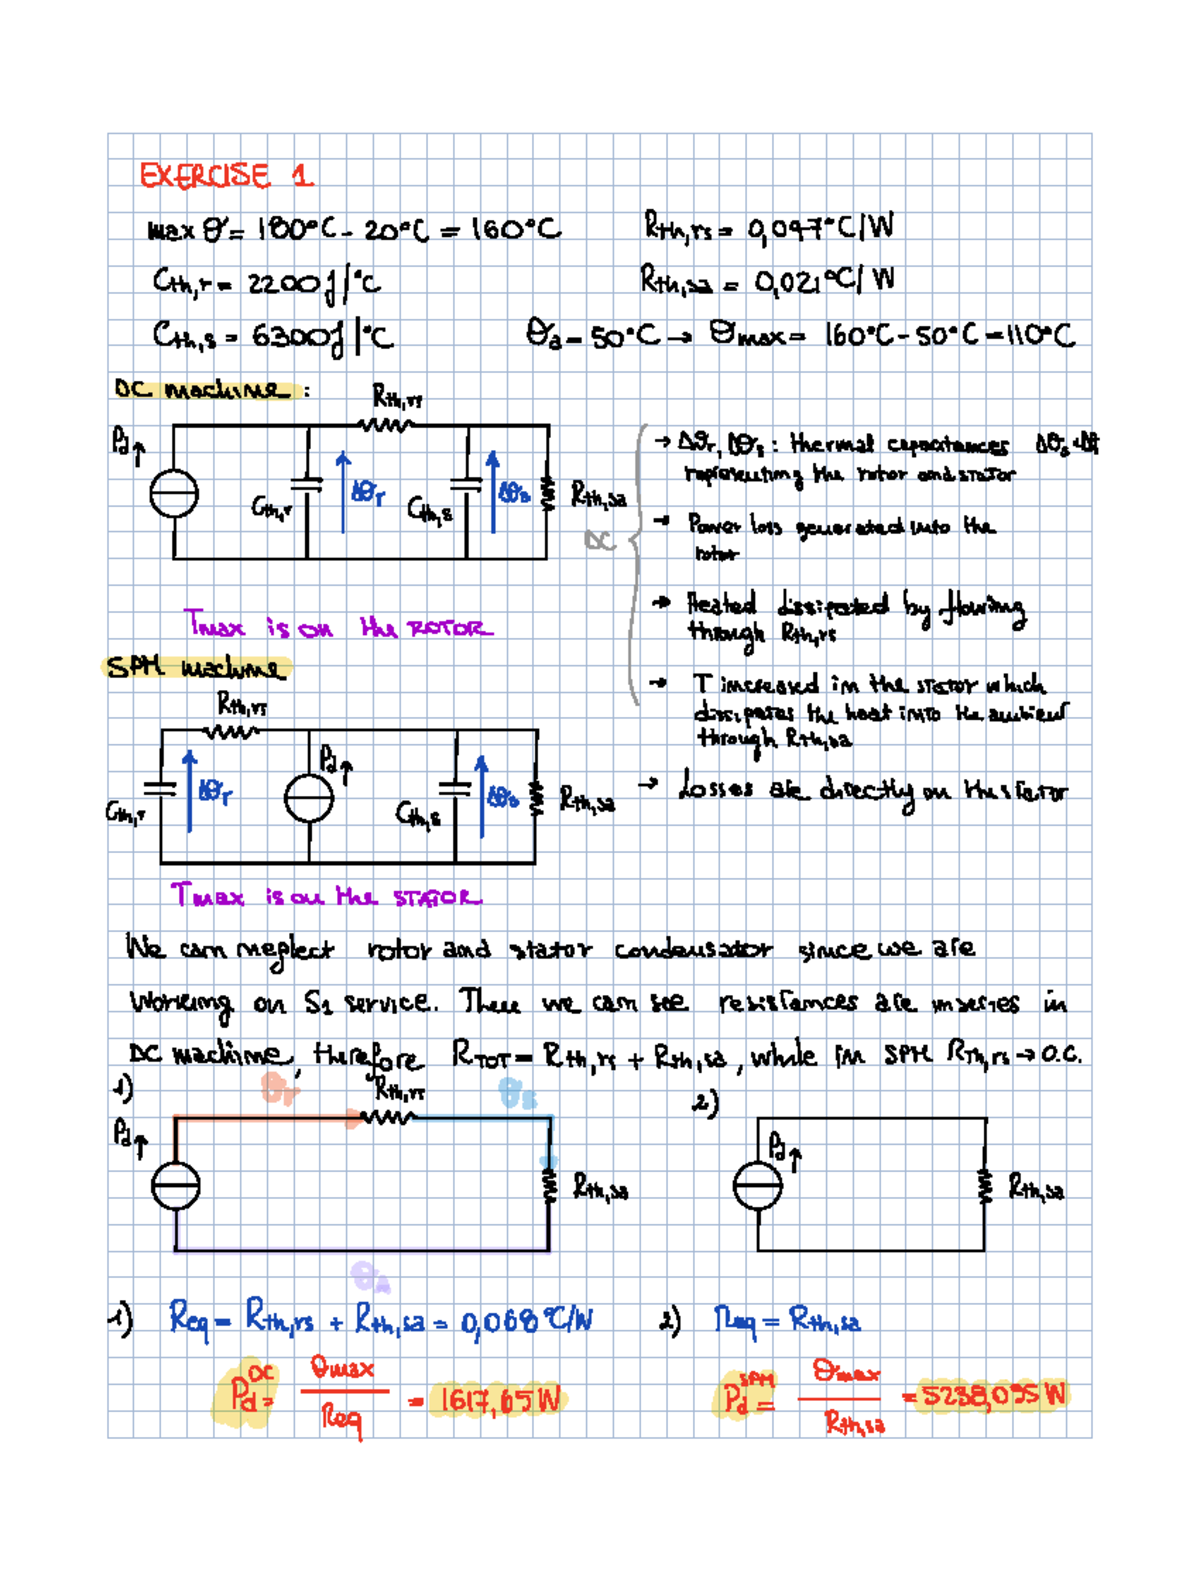 EXERCISE 1
max θ = 180°C - 20°C = 160°C
Rth,rs = 0,047°C/W
Cth,r = 2200 J/°C
Rth,sa = 0,021°C/W
Cth,s = 6300 J/°C
θa = 50°C → θmax = 160°C - 50°C = 110°C
DC machine :
Rth,rs
Pd↑
Cth,r
Δθr
Cth,s
Δθs
Rth,sa
DC
→ Δθr, Δθs : thermal capacitances
representing the rotor and stator
→ Power loss generated into the
rotor
→ Heated dissipated by flowing
through Rth,rs
→ T increased in the stator which
dissipates the heat into the ambient
through Rth,sa
Tmax is on the ROTOR
SPM machine
Rth,rs
Cth,r
Δθr
Pd↑
Cth,s
Δθs
Rth,sa
→ Losses are directly on the stator
Tmax is on the STATOR
We can neglect rotor and stator condensator since we are
working on S1 service. Then we can see resistances are in series in
DC machine, therefore RTOT = Rth,rs + Rth,sa, while in SPM Rth,rs → O.C.
1)
θr
Rth,rs
θs
Pd↑
Rth,sa
θA
2)
Pd↑
Rth,sa
1) Req = Rth,rs + Rth,sa = 0,068°C/W
2) Req = Rth,sa
Pd^DC = θmax / Req = 1617,65 W
Pd^SPM = θmax / Rth,sa = 5238,095 W